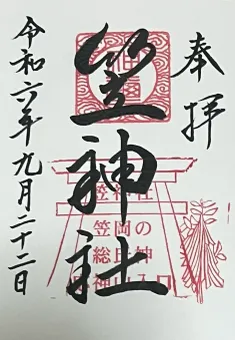 奉拝
笠神社
笠神社
笠岡の
総氏神
令和六年九月二十二日